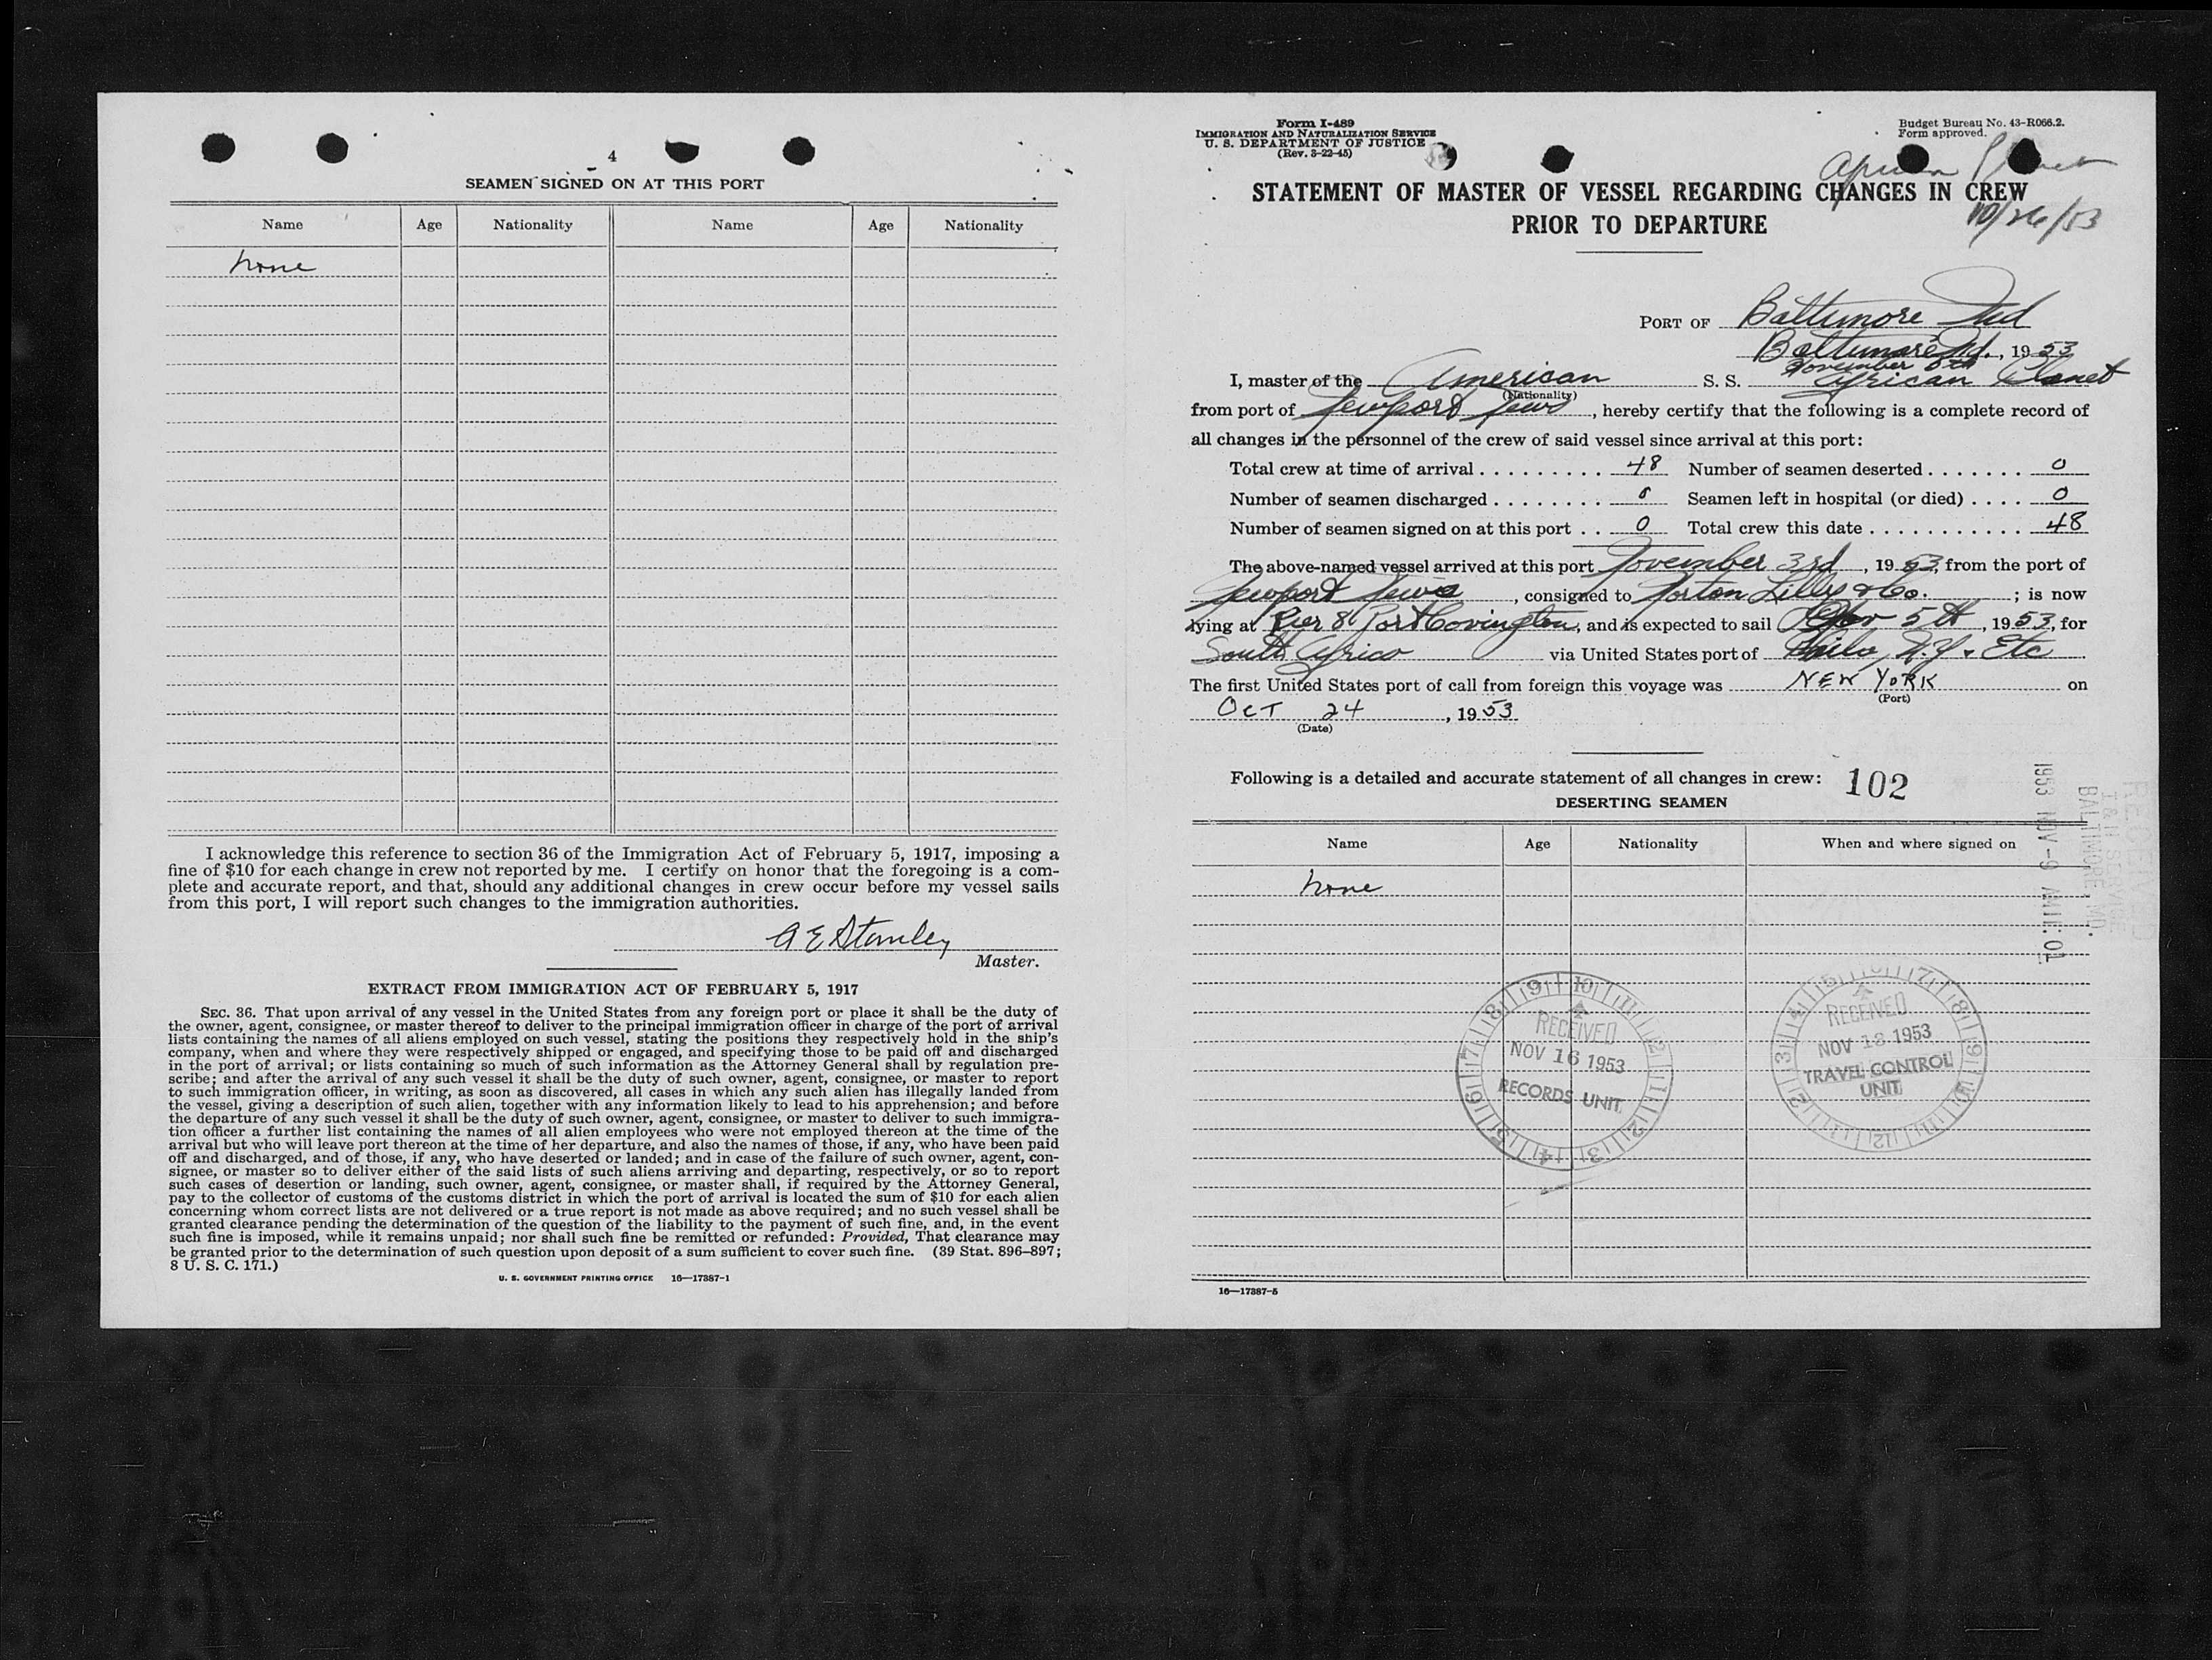 4
SEAMEN SIGNED ON AT THIS PORT
Name Age Nationality Name Age Nationality
None
I acknowledge this reference to section 36 of the Immigration Act of February 5, 1917, imposing a
fine of $10 for each change in crew not reported by me. I certify on honor that the foregoing is a com-
plete and accurate report, and that, should any additional changes in crew occur before my vessel sails
from this port, I will report such changes to the immigration authorities.
A E Stanley
Master.
EXTRACT FROM IMMIGRATION ACT OF FEBRUARY 5, 1917
SEC. 36. That upon arrival of any vessel in the United States from any foreign port or place it shall be the duty of
the owner, agent, consignee, or master thereof to deliver to the principal immigration officer in charge of the port of arrival
lists containing the names of all aliens employed on such vessel, stating the positions they respectively hold in the ship's
company, when and where they were respectively shipped or engaged, and specifying those to be paid off and discharged
in the port of arrival; or lists containing so much of such information as the Attorney General shall by regulation pre-
scribe; and after the arrival of any such vessel it shall be the duty of such owner, agent, consignee, or master to report
to such immigration officer, in writing, as soon as discovered, all cases in which any such alien has illegally landed from
the vessel, giving a description of such alien, together with any information likely to lead to his apprehension; and before
the departure of any such vessel it shall be the duty of such owner, agent, consignee, or master to deliver to such immigra-
tion officer a further list containing the names of all alien employees who were not employed thereon at the time of the
arrival but who will leave port thereon at the time of her departure, and also the names of those, if any, who have been paid
off and discharged, and of those, if any, who have deserted or landed; and in case of the failure of such owner, agent, con-
signee, or master so to deliver either of the said lists of such aliens arriving and departing, respectively, or so to report
such cases of desertion or landing, such owner, agent, consignee, or master shall, if required by the Attorney General,
pay to the collector of customs of the customs district in which the port of arrival is located the sum of $10 for each alien
concerning whom correct lists are not delivered or a true report is not made as above required; and no such vessel shall be
granted clearance pending the determination of the question of the liability to the payment of such fine, and, in the event
such fine is imposed, while it remains unpaid; nor shall such fine be remitted or refunded: Provided, That clearance may
be granted prior to the determination of such question upon deposit of a sum sufficient to cover such fine. (39 Stat. 896-897;
8 U. S. C. 171.)
U. S. GOVERNMENT PRINTING OFFICE 16—17387-1
Form I-489
IMMIGRATION AND NATURALIZATION SERVICE
U. S. DEPARTMENT OF JUSTICE
(Rev. 3-22-45)
Budget Bureau No. 43-R066.2.
Form approved.
African Planet
10/26/53
STATEMENT OF MASTER OF VESSEL REGARDING CHANGES IN CREW
PRIOR TO DEPARTURE
PORT OF Baltimore Md
Baltimore Md., 1953
November 5th
I, master of the American S. S. African Planet
(Nationality)
from port of Newport News, hereby certify that the following is a complete record of
all changes in the personnel of the crew of said vessel since arrival at this port:
Total crew at time of arrival . . . . . . . . . 48 Number of seamen deserted . . . . . . . 0
Number of seamen discharged . . . . . . . . Seamen left in hospital (or died) . . . . 0
Number of seamen signed on at this port . . 0 Total crew this date . . . . . . . . . . . . 48
The above-named vessel arrived at this port November 3rd, 1953, from the port of
Newport News, consigned to Norton Lilly & Co. ; is now
lying at Pier 8 Port Covington, and is expected to sail Nov 5th, 1953, for
South Africa via United States port of Phila, N.Y. Etc
The first United States port of call from foreign this voyage was NEW YORK on
(Port)
OCT 24, 1953
(Date)
Following is a detailed and accurate statement of all changes in crew: 102
DESERTING SEAMEN
Name Age Nationality When and where signed on
None
RECEIVED
NOV 16 1953
RECORDS UNIT
RECEIVED
NOV 18 1953
TRAVEL CONTROL
UNIT
1953 NOV-9 AM 11: 01
BALTIMORE, MD.
RECEIVED
16—17387-5